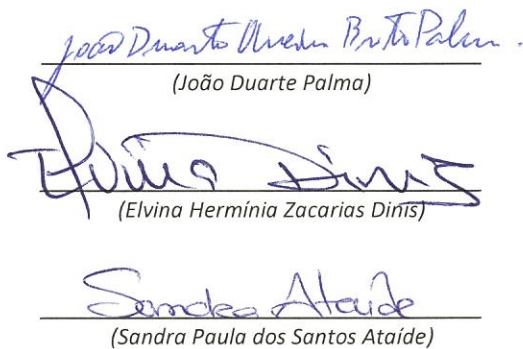 João Duarte Oliveira Brito Palma.
(João Duarte Palma)
Elvina Dinis
(Elvina Hermínia Zacarias Dinis)
Sandra Ataíde
(Sandra Paula dos Santos Ataíde)